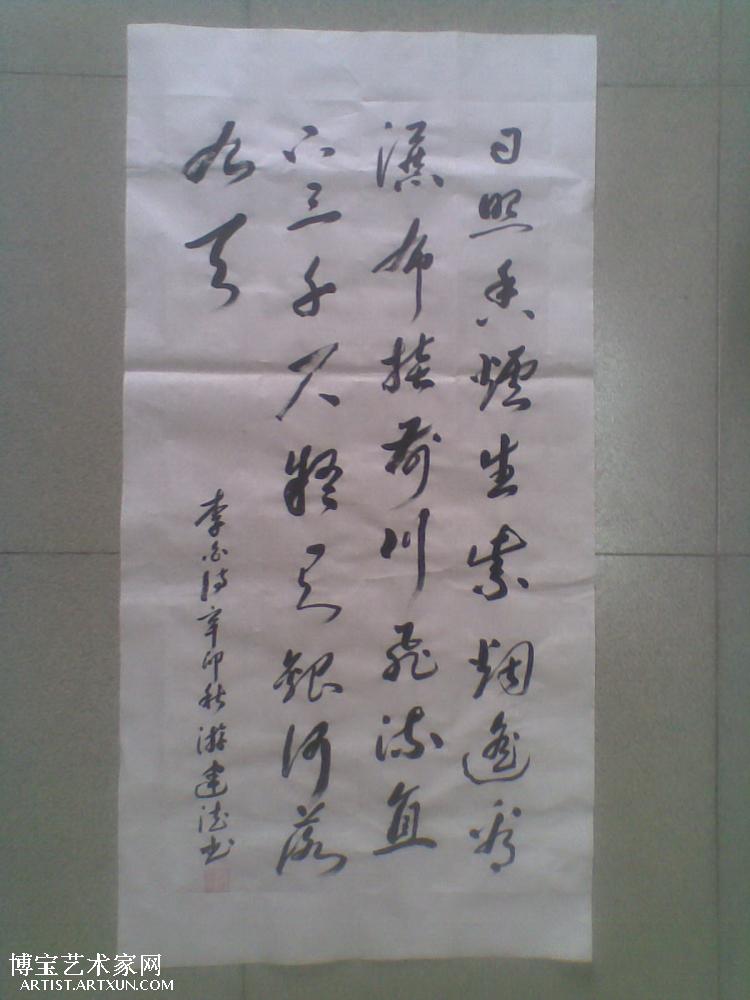 日照香爐生紫烟遥看
瀑布挂前川飛流直
下三千尺疑是銀河落
九天
李白诗辛卯秋游建法书
博宝艺术家网
ARTIST.ARTXUN.COM